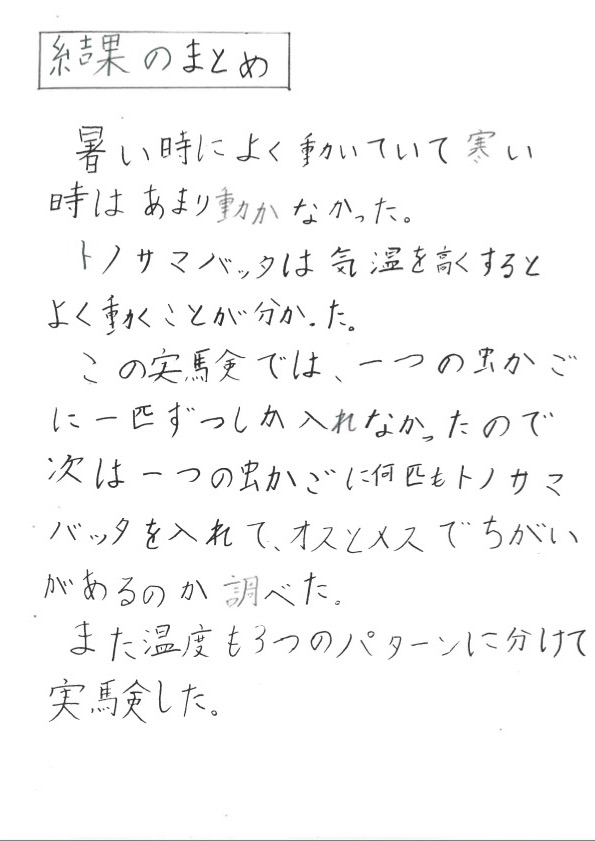 結果のまとめ
暑い時によく動いていて寒い
時はあまり動かなかった。
トノサマバッタは気温を高くすると
よく動くことが分かった。
この実験では、一つの虫かご
に一匹ずつしか入れなかったので
次は一つの虫かごに何匹もトノサマ
バッタを入れて、オスとメスでちがい
があるのか調べた。
また温度も3つのパターンに分けて
実験した。